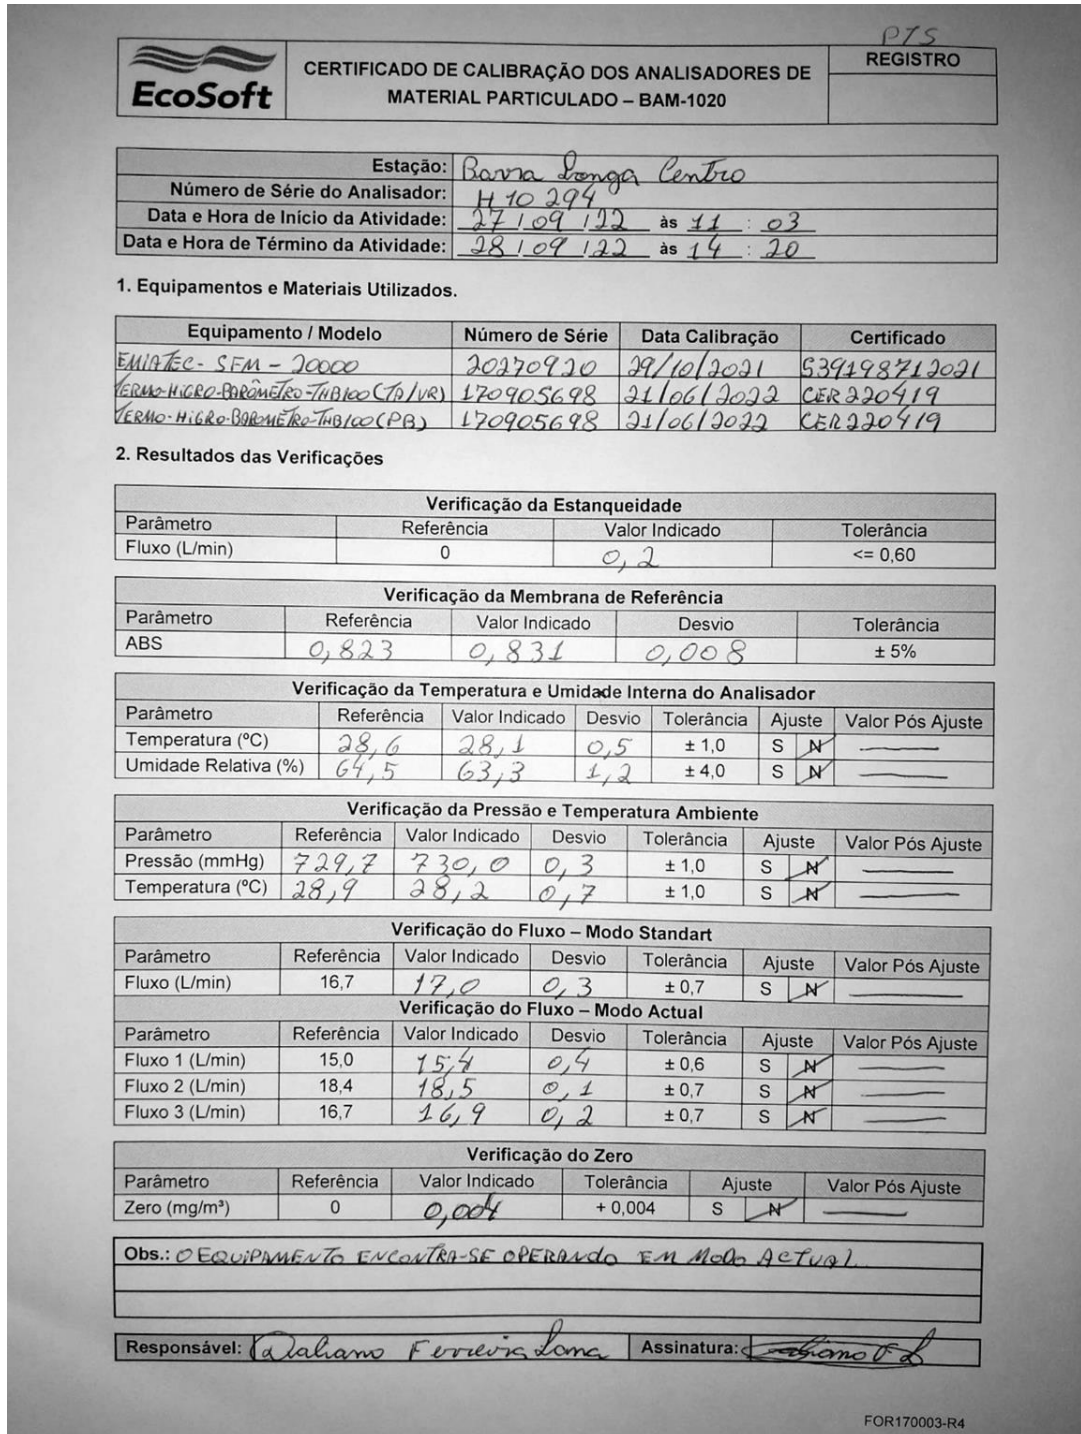 PTS
EcoSoft
CERTIFICADO DE CALIBRAÇÃO DOS ANALISADORES DE
MATERIAL PARTICULADO – BAM-1020
REGISTRO
Estação: Barra Longa Centro
Número de Série do Analisador: H 10 294
Data e Hora de Início da Atividade: 27/09/22 às 11:03
Data e Hora de Término da Atividade: 28/09/22 às 14:20
1. Equipamentos e Materiais Utilizados.
Equipamento / Modelo Número de Série Data Calibração Certificado
EMIATEC- SFM - 20000 20270920 29/10/2021 S39198712021
TERMO-HIGRO-BARÔMETRO-THB100 (TA/UR) 170905698 21/06/2022 CER220419
TERMO-HIGRO-BARÔMETRO-THB100 (PB) 170905698 21/06/2022 CER220419
2. Resultados das Verificações
Verificação da Estanqueidade
Parâmetro Referência Valor Indicado Tolerância
Fluxo (L/min) 0 0,2 <= 0,60
Verificação da Membrana de Referência
Parâmetro Referência Valor Indicado Desvio Tolerância
ABS 0,823 0,831 0,008 ± 5%
Verificação da Temperatura e Umidade Interna do Analisador
Parâmetro Referência Valor Indicado Desvio Tolerância Ajuste Valor Pós Ajuste
Temperatura (ºC) 28,6 28,1 0,5 ± 1,0 S N
Umidade Relativa (%) 64,5 63,3 1,2 ± 4,0 S N
Verificação da Pressão e Temperatura Ambiente
Parâmetro Referência Valor Indicado Desvio Tolerância Ajuste Valor Pós Ajuste
Pressão (mmHg) 729,7 730,0 0,3 ± 1,0 S N
Temperatura (ºC) 28,9 28,2 0,7 ± 1,0 S N
Verificação do Fluxo – Modo Standart
Parâmetro Referência Valor Indicado Desvio Tolerância Ajuste Valor Pós Ajuste
Fluxo (L/min) 16,7 17,0 0,3 ± 0,7 S N
Verificação do Fluxo – Modo Actual
Parâmetro Referência Valor Indicado Desvio Tolerância Ajuste Valor Pós Ajuste
Fluxo 1 (L/min) 15,0 15,4 0,4 ± 0,6 S N
Fluxo 2 (L/min) 18,4 18,5 0,1 ± 0,7 S N
Fluxo 3 (L/min) 16,7 16,9 0,2 ± 0,7 S N
Verificação do Zero
Parâmetro Referência Valor Indicado Tolerância Ajuste Valor Pós Ajuste
Zero (mg/m³) 0 0,004 + 0,004 S N
Obs.: O EQUIPAMENTO ENCONTRA-SE OPERANDO EM MODO ACTUAL
Responsável: Ferreira Lana Assinatura:
FOR170003-R4